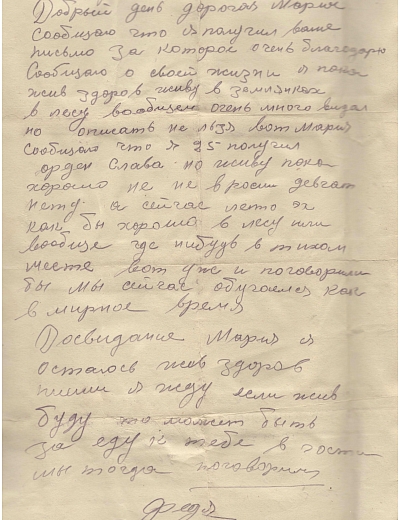 Добрый день дорогая Мария
сообщаю что я получил ваше
письмо за которое очень благодарю
Сообщаю о своей жизни я пока
жив здоров живу в землянках
в лесу вообщем очень много видал
но описать не льзя вот Мария
сообщаю что я 25 получил
орден Слава но живу пока
хорошо не не в роем девчат
нету а сейчас лето эх
как бы хорошо в лесу или
вообще где нибудь в тихом
месте вот уж и поговорили
бы мы сейчас обучаемся как
в мирное время
Досвидание Мария я
остаюсь жив здоров
пиши я жду если жив
буду то может быть
за еду к тебе в гости
мы тогда поговорим
Федя